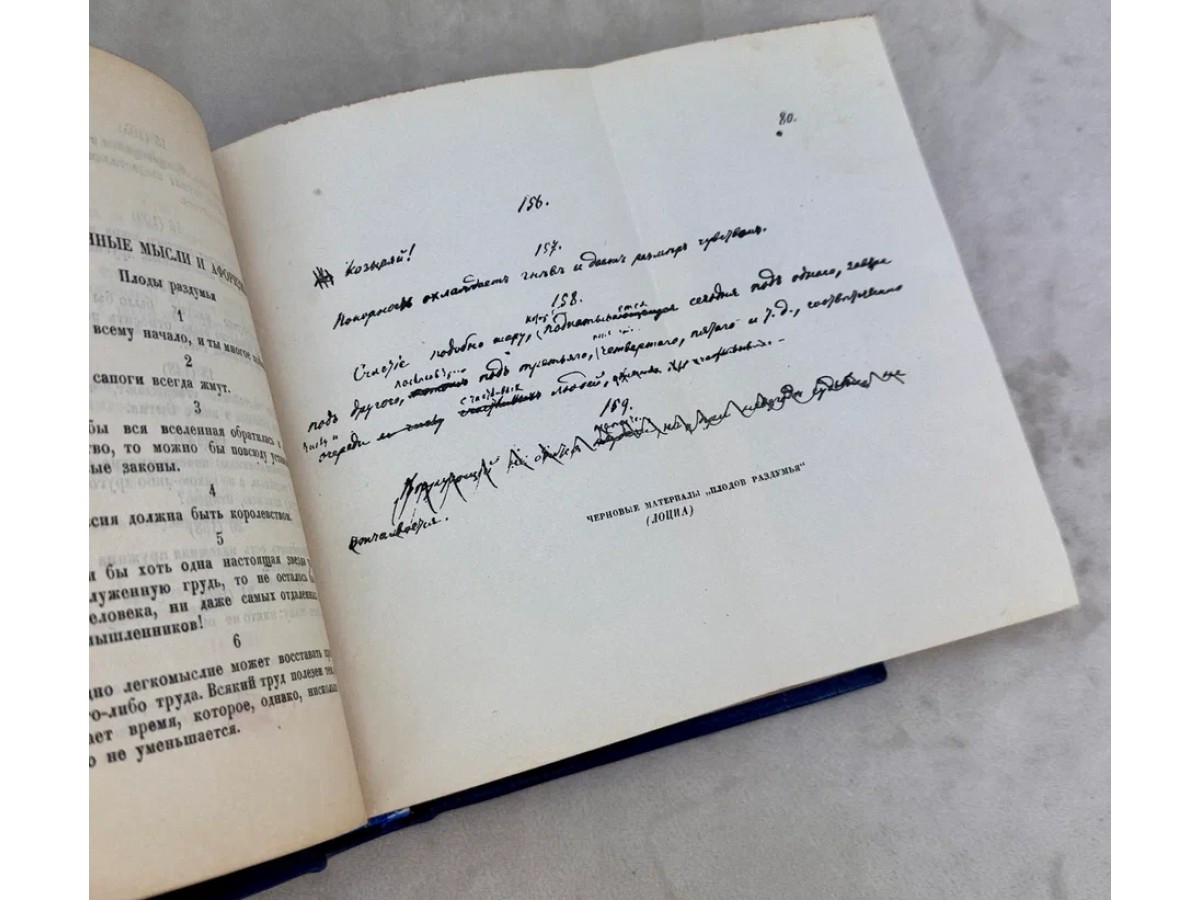 ННЫЕ МЫСЛИ И АФОРИЗ
Плоды раздумья
1
всему начало, и ты многое
2
сапоги всегда жмут.
3
бы вся вселенная обратилась
ство, то можно бы повсюду
вые законы.
4
ссия должна быть королевством.
5
бы хоть одна настоящая звезда
служенную грудь, то не осталось
человека, ни даже самых отдаленных
мышленников!
6
дно легкомыслие может восставать
го-либо труда. Всякий труд полезен
ает время, которое, однако,
о не уменьшается.
80.
156.
Козыряй!
157.
Покорность охлаждаетъ гнѣвъ и даетъ размѣръ чувствамъ.
158.
Счастіе подобно шару, подкатывающемуся сегодня подъ одного, завтра
подъ другого, подъ третьяго, четвертаго, пятаго и т.д., соотвѣтственно
числу и
очереди людей,
159.
кончается.
ЧЕРНОВЫЕ МАТЕРИАЛЫ „ПЛОДОВ РАЗДУМЬЯ“
(ЛОЦИА)